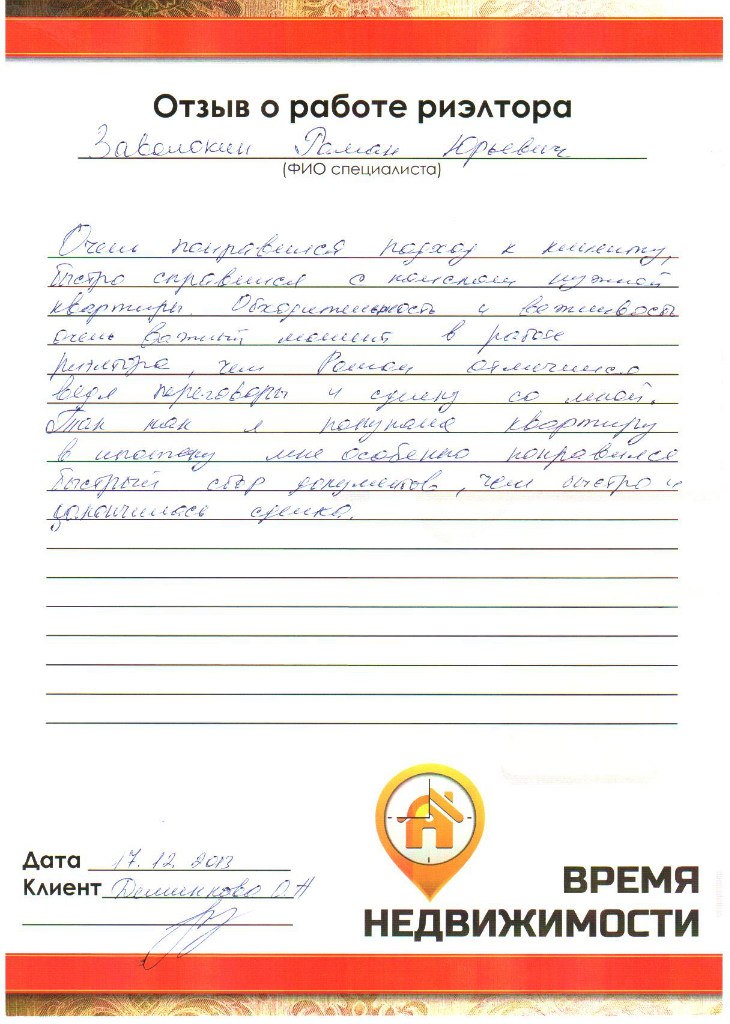 Отзыв о работе риэлтора
Заволокин Роман Юрьевич
(ФИО специалиста)
Очень понравился подход к клиенту,
быстро справился с поиском нужной
квартиры. Обходительность и вежливость
очень важный момент в работе
риэлтора, чем Роман отличился
ведя переговоры и сделку со мной.
Так как я покупала квартиру
в ипотеку мне особенно понравился
быстрый сбор документов, чем быстро и
закончилась сделка.
Дата 17.12.2013
Клиент О.Н
ВРЕМЯ
НЕДВИЖИМОСТИ